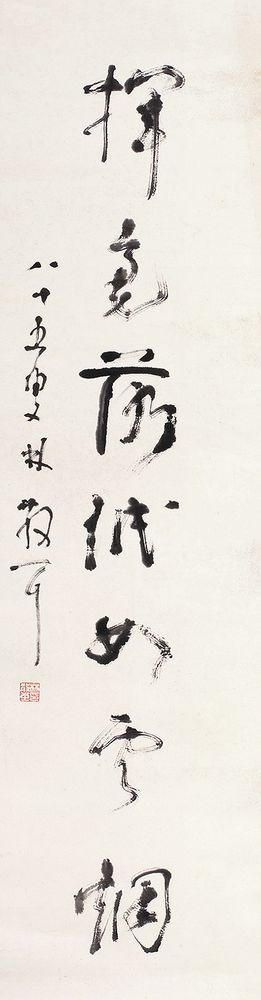 揮毫落紙如雲烟
八十五叟林散耳